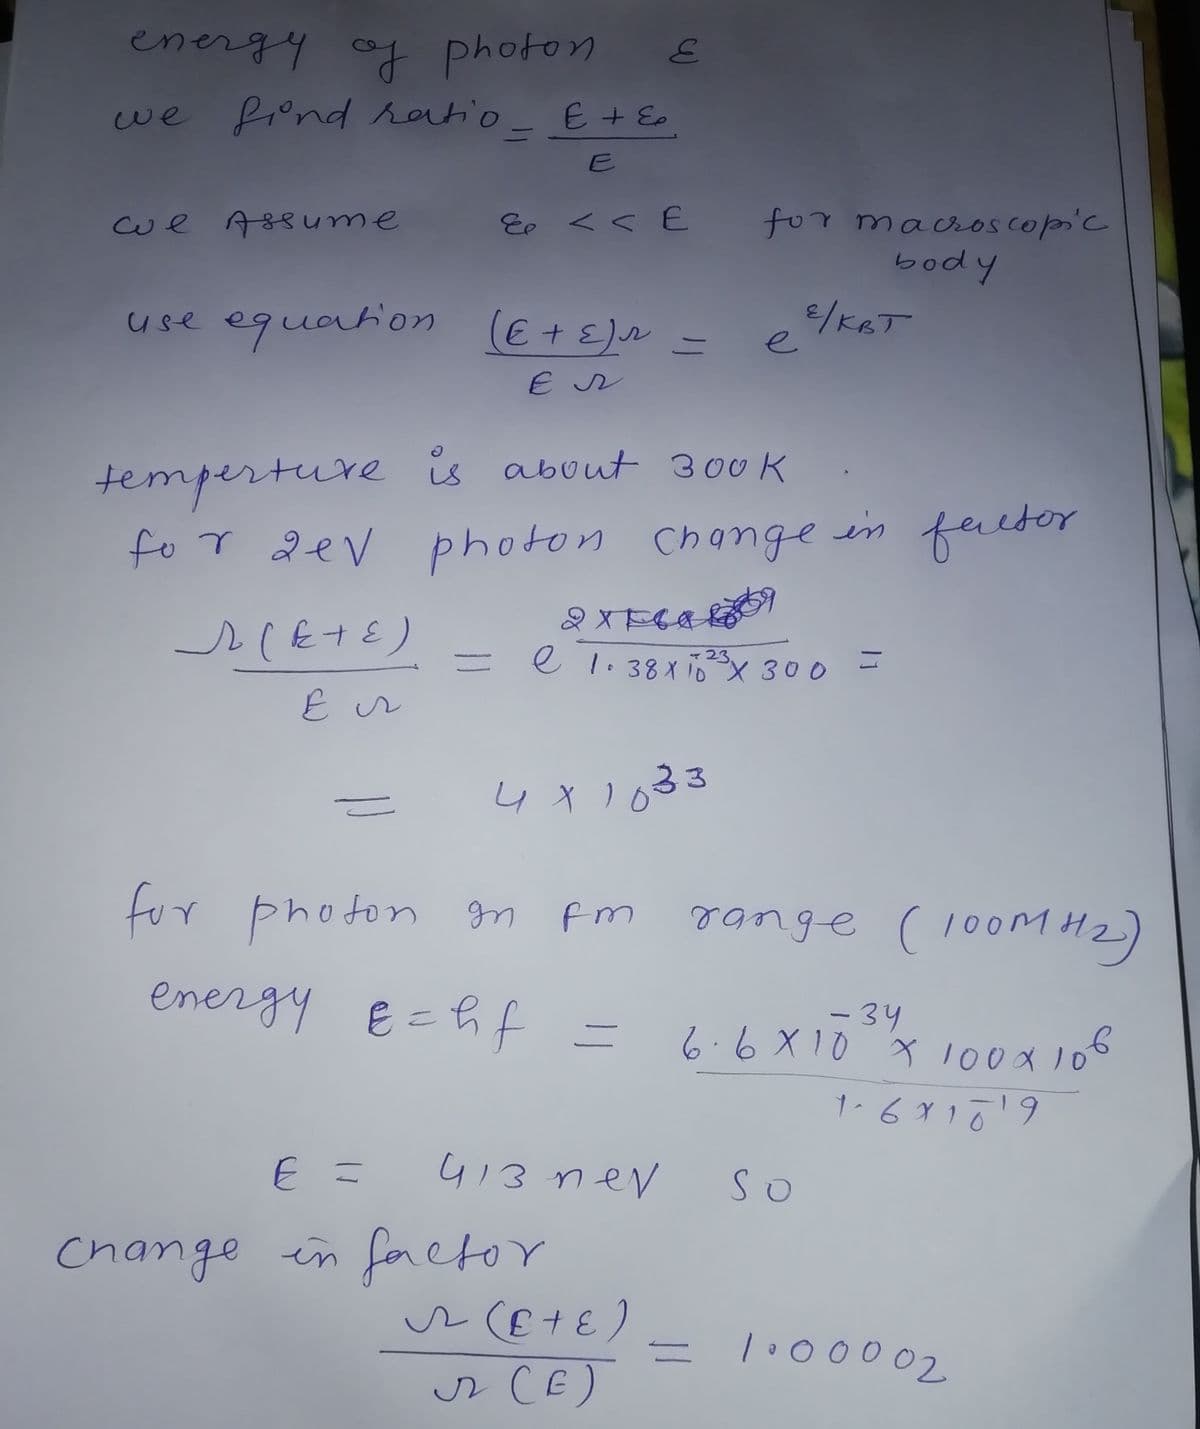 energy of photon ε
we find ratio = E + ε₀
E
we Assume ε₀ << E for macroscopic
body
use equation (E + ε)Ω = e^ε/KBT
E Ω
temperture is about 300K
for 2eV photon change in factor
Ω(E+ε) = e^2× / 1.38×10^-23 × 300 =
E Ω
= 4 × 10^33
for photon in fm range (100MHz)
energy E = hf = 6.6 × 10^-34 × 100 × 10^6
1.6×10^-19
E = 413 neV so
change in factor
Ω (E+ε) = 1.00002
Ω (E)